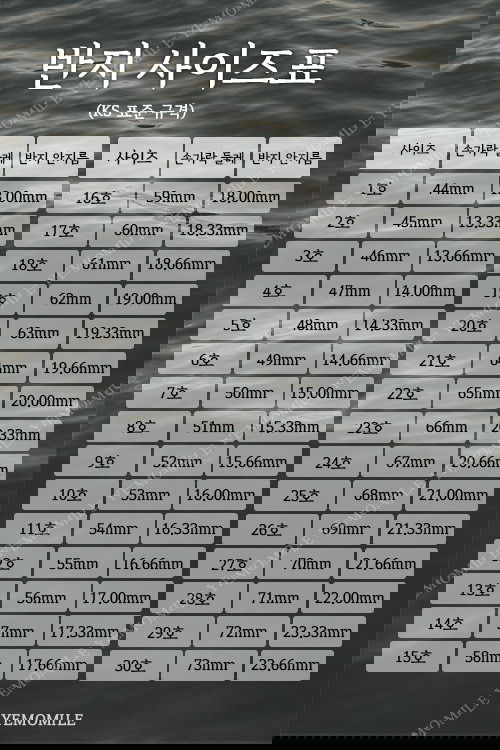 반지 사이즈표
(KS 표준 규격)
사이즈 손가락 둘레 반지 안지름 사이즈 손가락 둘레 반지 안지름
1호 44mm 13.00mm 16호 59mm 18.00mm
2호 45mm 13.33mm 17호 60mm 18.33mm
3호 46mm 13.66mm 18호 61mm 18.66mm
4호 47mm 14.00mm 19호 62mm 19.00mm
5호 48mm 14.33mm 20호 63mm 19.33mm
6호 49mm 14.66mm 21호 64mm 19.66mm
7호 50mm 15.00mm 22호 65mm 20.00mm
8호 51mm 15.33mm 23호 66mm 20.33mm
9호 52mm 15.66mm 24호 67mm 20.66mm
10호 53mm 16.00mm 25호 68mm 21.00mm
11호 54mm 16.33mm 26호 69mm 21.33mm
12호 55mm 16.66mm 27호 70mm 21.66mm
13호 56mm 17.00mm 28호 71mm 22.00mm
14호 57mm 17.33mm 29호 72mm 23.33mm
15호 58mm 17.66mm 30호 73mm 23.66mm
YEMOMILE